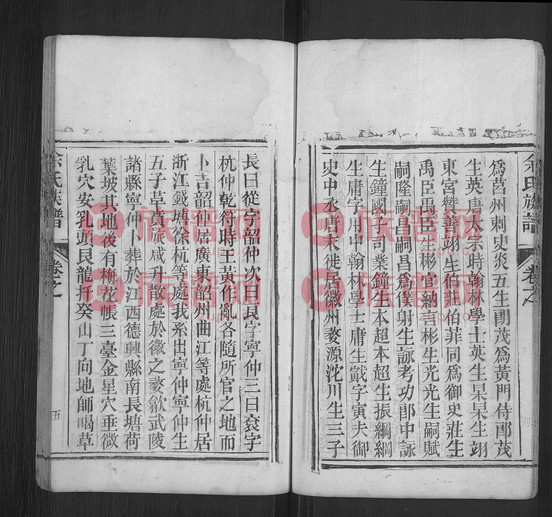 余氏族譜
卷之
為莒州刺史炎五生
茂為黃門侍郎茂
生英唐太宗時翰林學士英生杲杲生翊
東宮贊善翊生伯莊伯菲同為御史莊生
禹臣禹臣生彬官納言彬生光光生嗣賦
嗣隆嗣昌嗣昌為僕射生詠考功郎中詠
生鐘國子司業鐘生本超本超生振綱綱
生庸字用中翰林學士庸生
字寅夫御
史中丞唐末徙居徽州婺源沱川生三子
長曰從字韶仲次曰艮字寧仲三曰袞字
杭仲乾符時王黃作亂各隨所官之地而
卜吉韶仲居廣東韶州曲江等處杭仲居
浙江錢塘餘杭等處我系出寧仲寧仲生
五子卓貢派咸升散處於徽之婺歙武陵
諸縣寧仲卜葬於江西德興縣南長培荷
葉坡其地後有梅花帳三臺金星穴垂微
乳穴安乳頭艮龍扦癸山丁向地師喝草
余氏族譜
卷之
五
族譜網